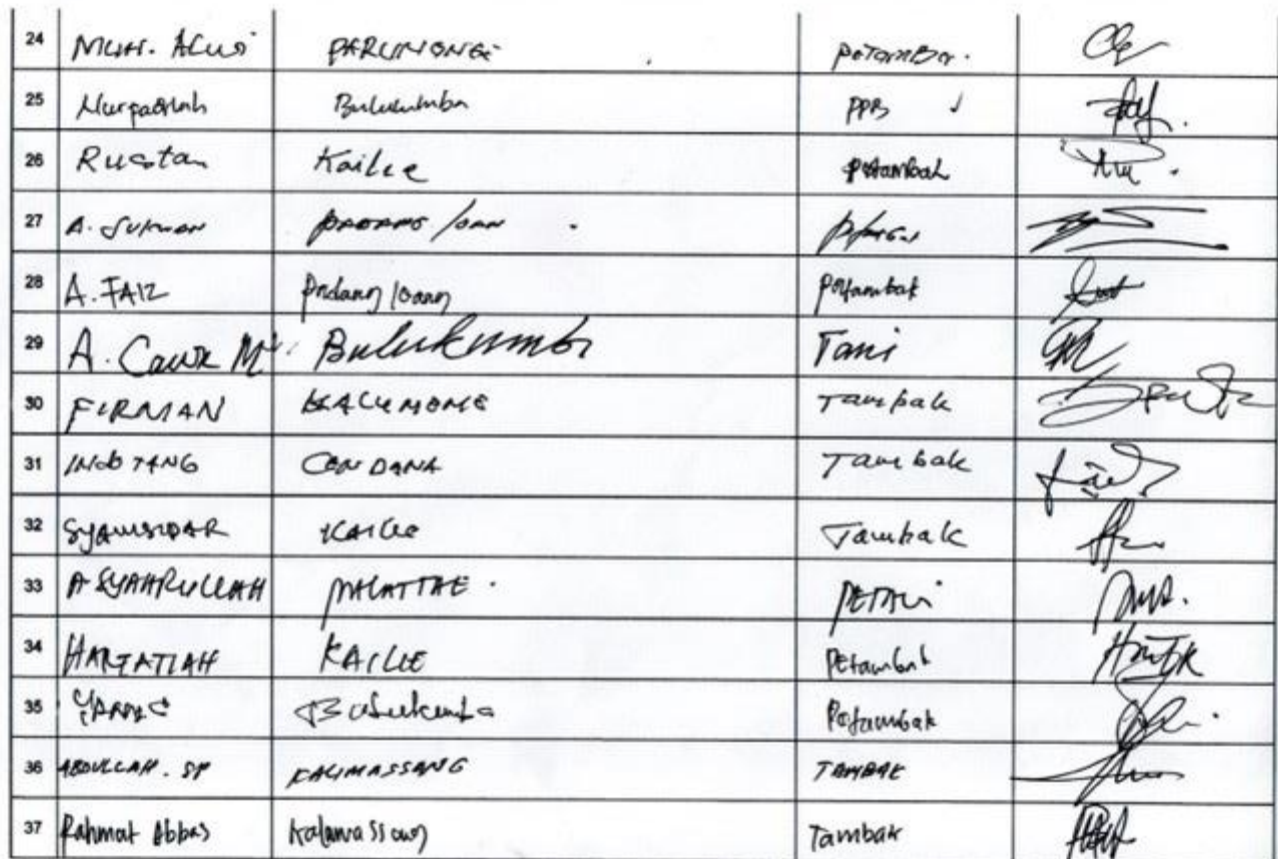 24 MUH. ALWI PARUMONGE petamBa.
25 Nurfadilah Bulukumba PPB
26 Rustan Kailie petambak
27 A. SUKMAN PADANG LOAN
28 A. FAIZ Padang loang petambak
29 A. Bulukumba Tani
30 FIRMAN KALUMEME Tambak
31 INDO TANG CENDANA Tambak
32 SYAMSIDAR KAILIE Tambak
33 A SYAHRULLAH MALATTAE. PETANI
34 HARTATIAH KAILIE Petambak
35 Bulukumba Petambak
36 ABDULLAH. SP KALIMASSANG TAMBAK
37 Rahmat Abbas Kalamassang Tambak